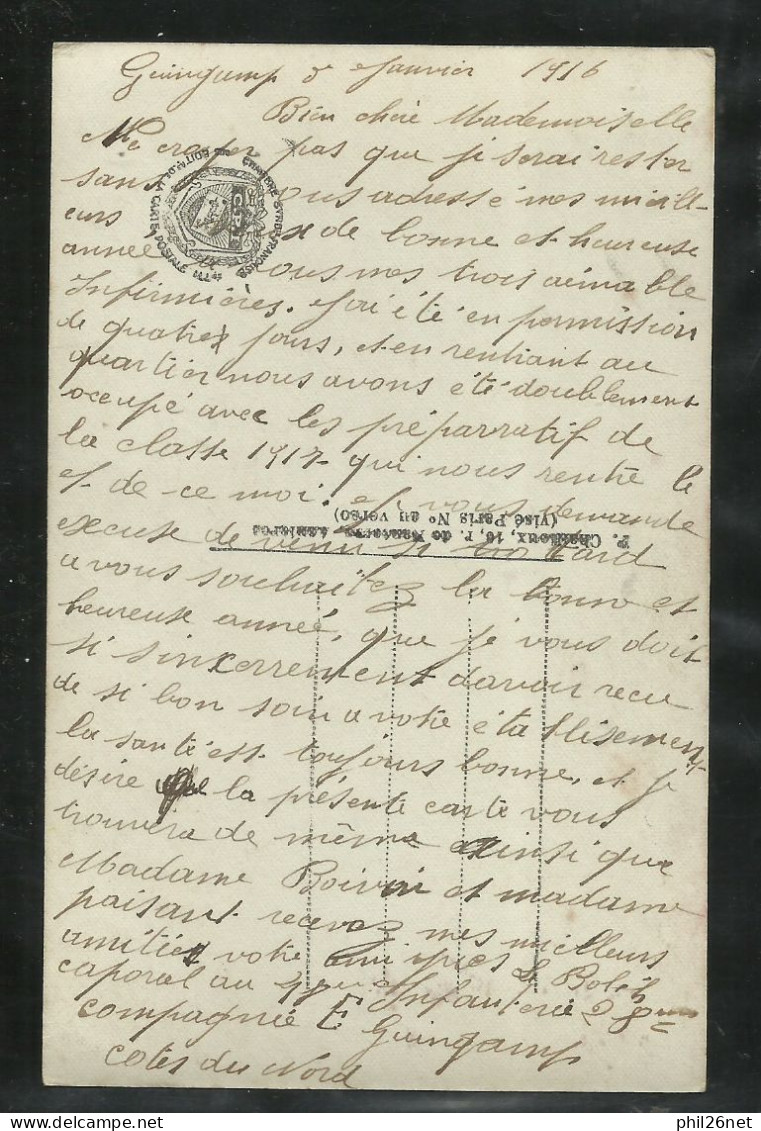 Guingamp 5 Janvier 1916
Bien chère Mademoiselle
Ne croyer pas que je serai rester
sans vous adressé mes meill-
eurs de bonne et heureuse
année vous mes trois aimable
Infirmières. J'ai été en permission
de quatre jours, et en rentrant au
quartier nous avons été doublement
occupé avec les préparratif de
la classe 1917 qui nous rentre le
et de ce moi. je vous demande
P. Chailloux, 16, r. de Nanterre Asnières
(Visé Paris No au verso)
excuse de venir si tard
a vous souhaitez la bonne et
heureuse année, que je vous doit
si sincerrement davoir recu
de si bon soin a votre établisement
la santé est toujours bonne, et je
désire que la présente carte vous
trouvera de même ainsi que
Madame Boivin et madame
paisant recevez mes meilleurs
amitiés votre ami
caporal au Infanterie 28eme
compagnie E Guingamp
cotes du Nord
CHAMBRE SYNDle FRANÇAISE
DES EDITrs DE LA CARTE POSTALE ILLée